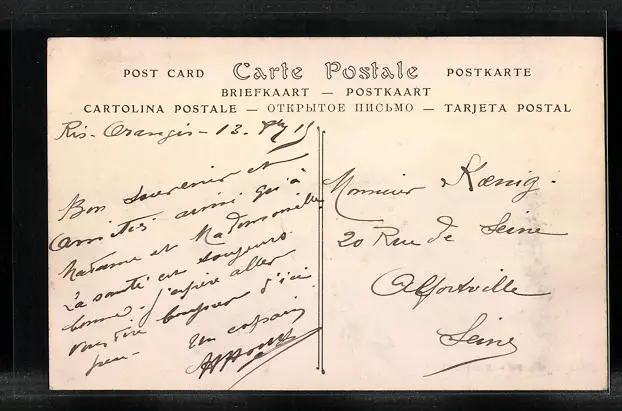 POST CARD Carte Postale POSTKARTE
BRIEFKAART — POSTKAART
CARTOLINA POSTALE — ОТКРЫТОЕ ПИСЬМО — TARJETA POSTAL
Ris-Orangis - 13. 15
Bon souvenir et
amitiés ainsi qu'à
Madame et Mademoiselle
La santé est toujours
bonne. J'espère aller
vous dire bonjour d'ici
peu -
Un copain
Monsieur Kœnig.
20 Rue de Seine
Alfortville
Seine